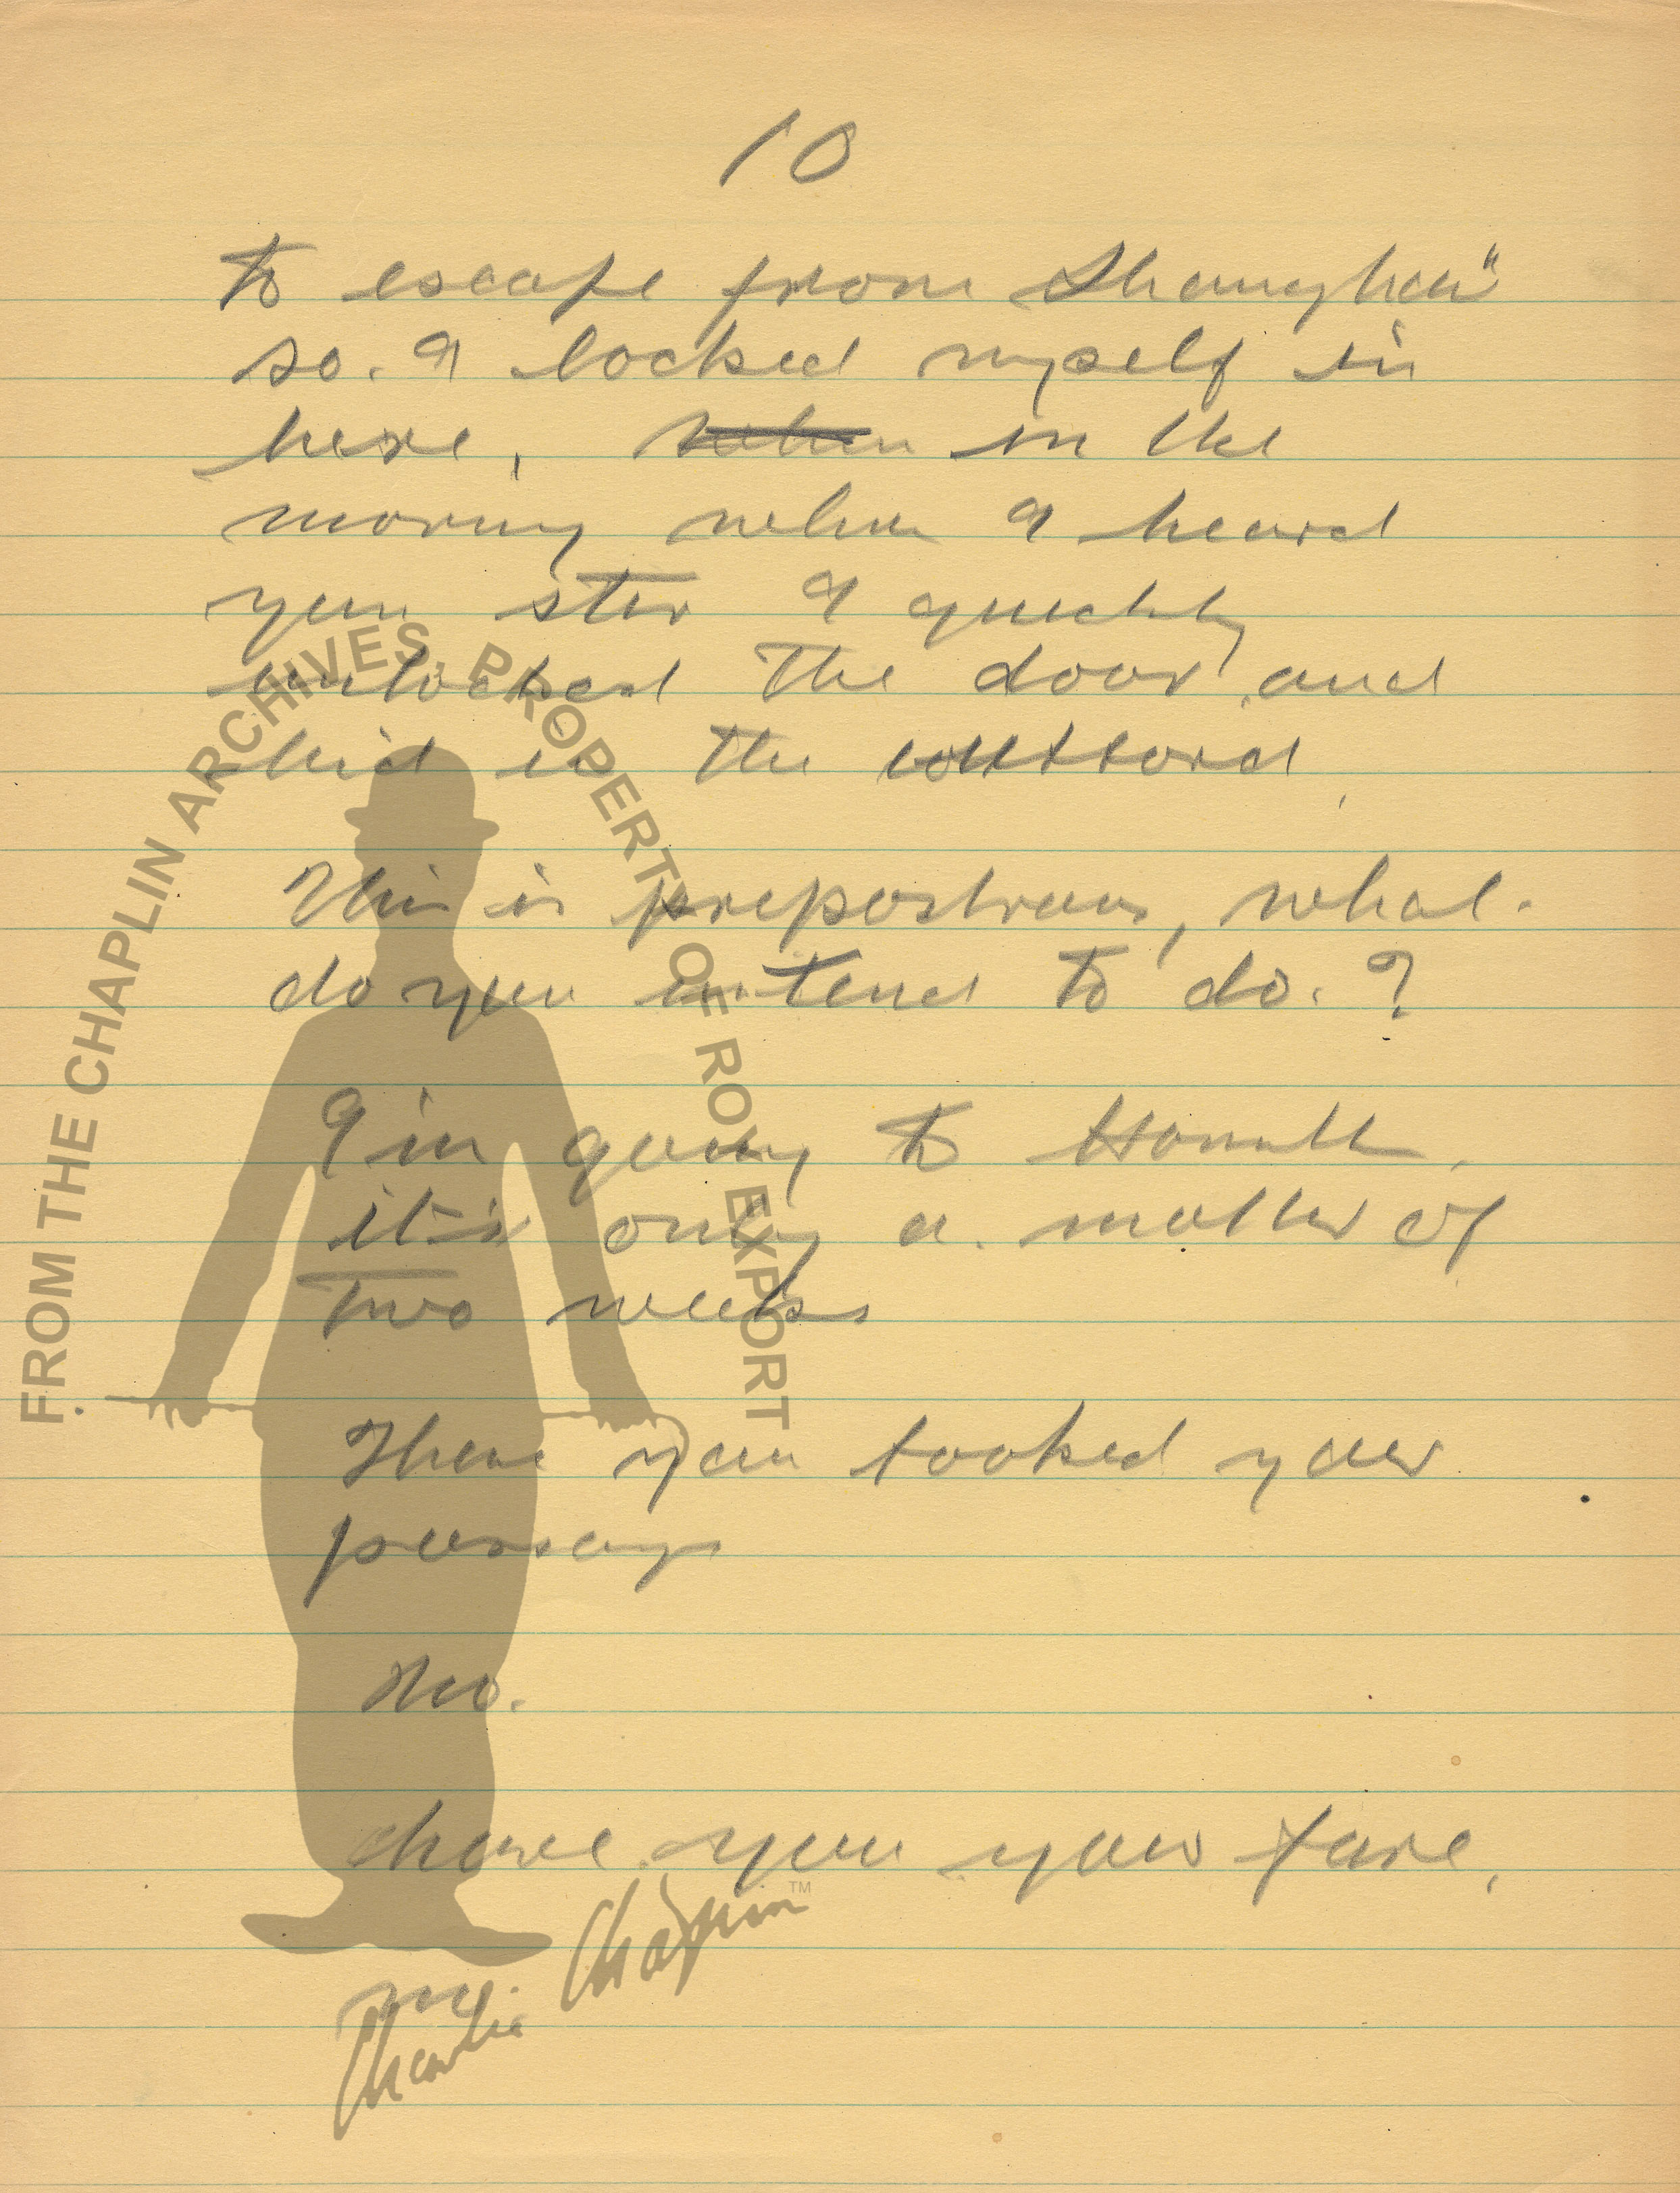 10
to escape from Shanghai
so. I locked myself in
here, when in the
morning when I heard
you stir I quickly
unlocked the door and
hid in the
This is prepostrous, what
do you intend to do. ?
I'm going to
it's only a matter of
two weeks
Then you booked your
passage
No.
have you your fare,
no.
FROM THE CHAPLIN ARCHIVES, PROPERTY OF ROY EXPORT
Charlie Chaplin™